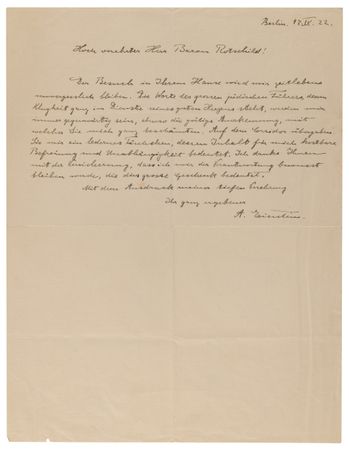 Berlin. 17.IX. 22.
Hoch verehrter Herr Baron Rotschild!
Der Besuch in Ihrem Hause wird mir zeitlebens
unvergesslich bleiben. Die Worte des grossen jüdischen Führers, dessen
Klugheit ganz im Dienste seines guten Herzens steht, werden mir
immer gegenwärtig sein, ebenso die gütige Anerkennung, mit
welcher Sie mich ganz beschämten. Auf dem Corridor übergaben
Sie mir ein ledernes Täschchen, dessen Inhalt für mich kostbare
Befreiung und Unabhängigkeit bedeutet. Ich danke Ihnen
mit der Versicherung, dass ich mir der Verantwortung bewusst
bleiben werde, die dies grosse Geschenk bedeutet.
Mit dem Ausdruck meiner tiefen Verehrung
Ihr ganz ergebener
A. Einstein.